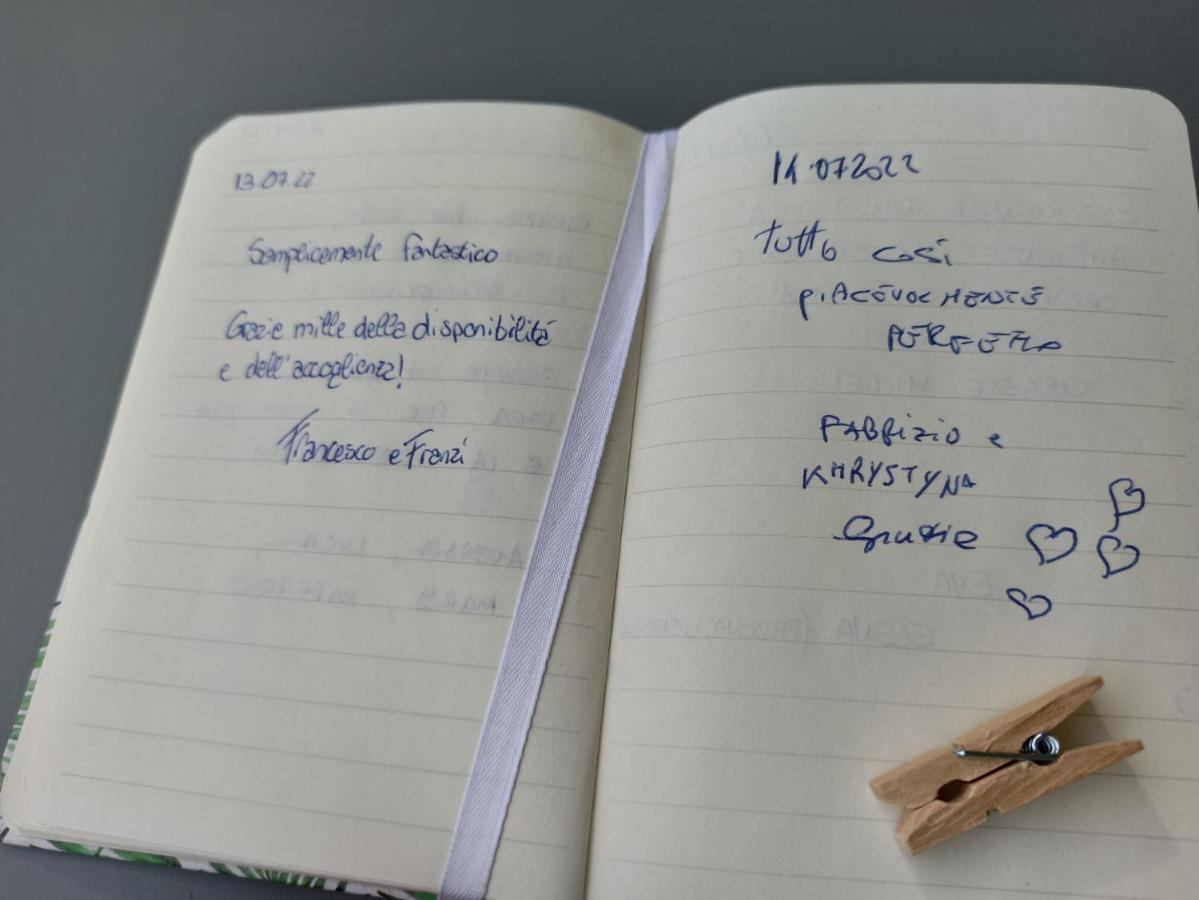 13.07.22
Semplicemente fantastico
Grazie mille della disponibilità
e dell'accoglienza!
Francesco e Franzi
14.07.2022
Tutto così
piACEVOLMENTE
PERFETTO
FABRIZIO e
KHRYSTYNA
Grazie